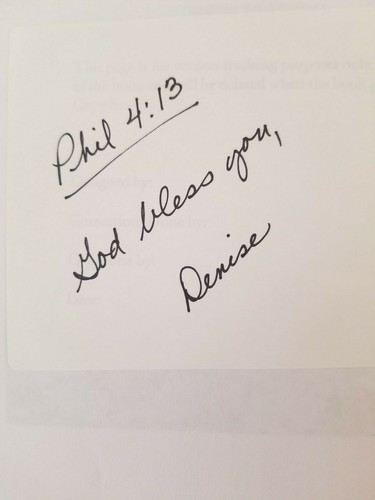 Phil 4:13
God bless you,
Denise